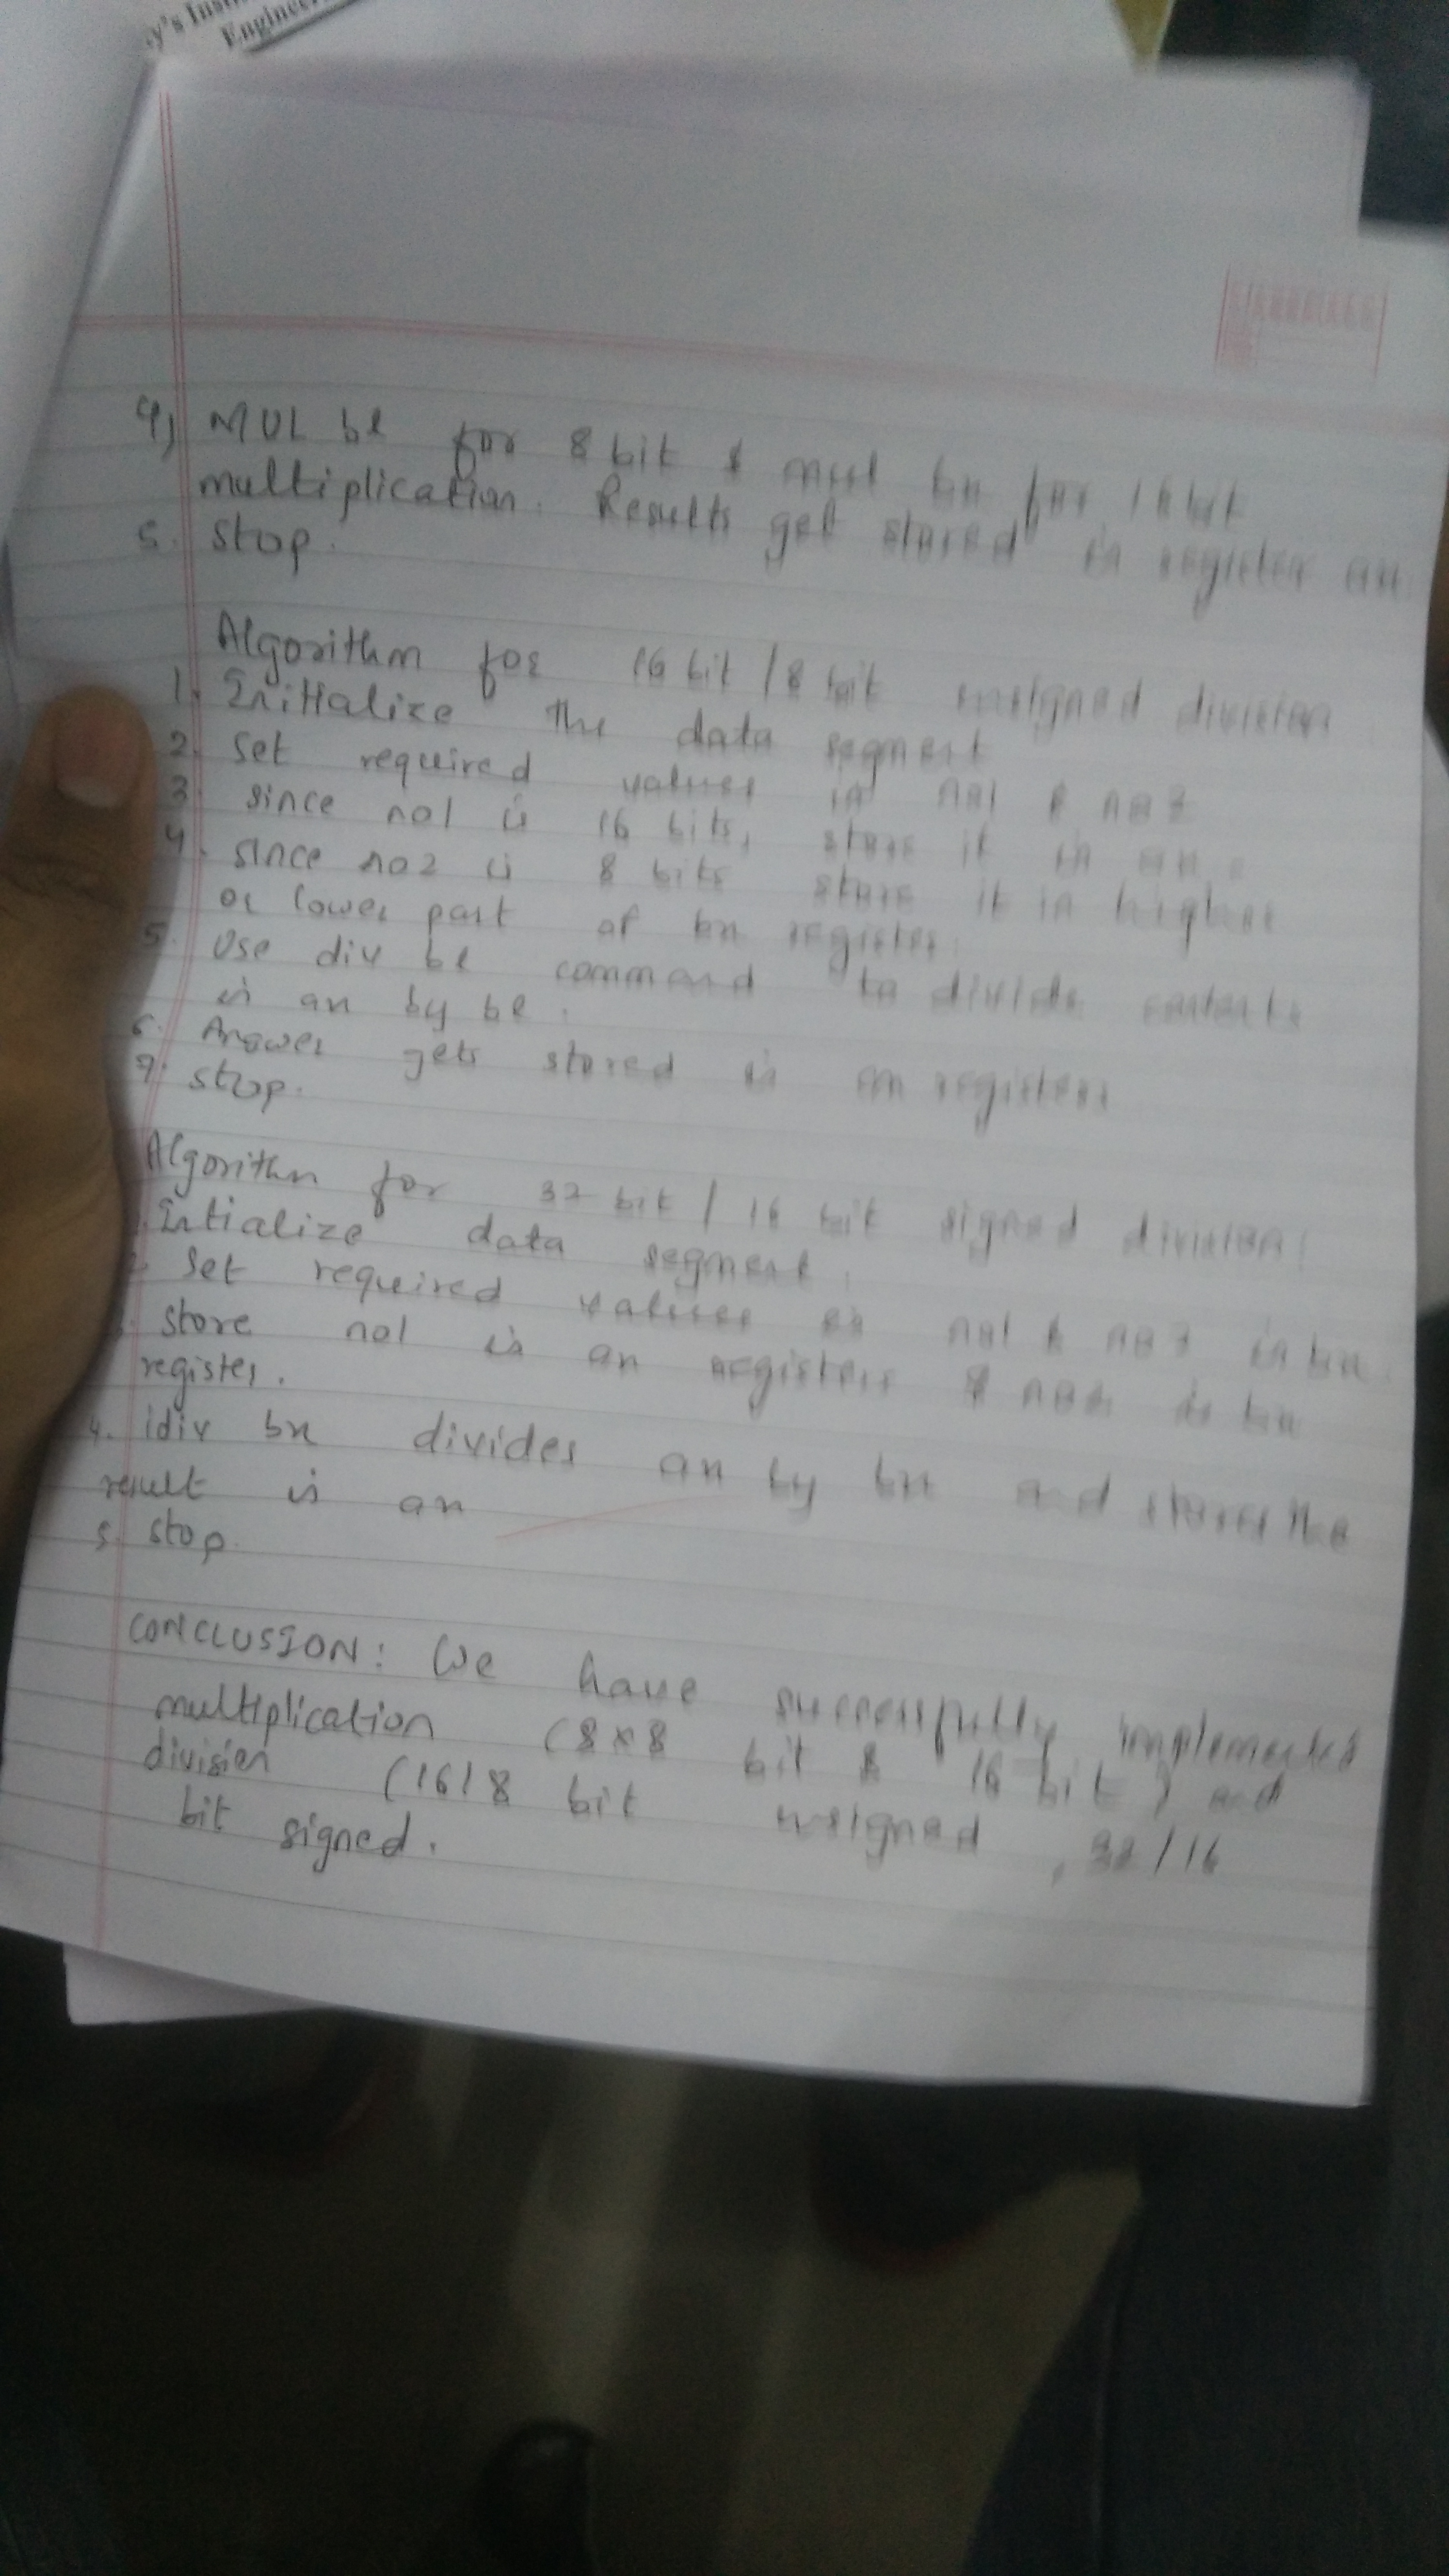 y's Inst
Engineer
4) MUL bl for 8 bit & mul bx for 16 bit
multiplication. Results get stored in register ax
5. stop.
Algorithm for 16 bit / 8 bit unsigned division
1. Initialize the data segment
2. Set required values in no1 & no2
3. since no1 is 16 bits, store it in ax.
4. since no2 is 8 bits store it in higher
or lower part of bx register.
5. Use div bl command to divide contents
in ax by bl.
6. Answer gets stored in ax registers
7. stop.
Algorithm for 32 bit / 16 bit signed division:
Intialize data segment.
Set required values in no1 & no2 in bx.
store no1 in ax registers & no2 in bx
register.
4. idiv bx divides ax by bx and stores the
result in ax
5. stop.
CONCLUSION: We have successfully implemented
multiplication (8x8 bit & 16 bit) and
division (16/8 bit unsigned, 32/16
bit signed.